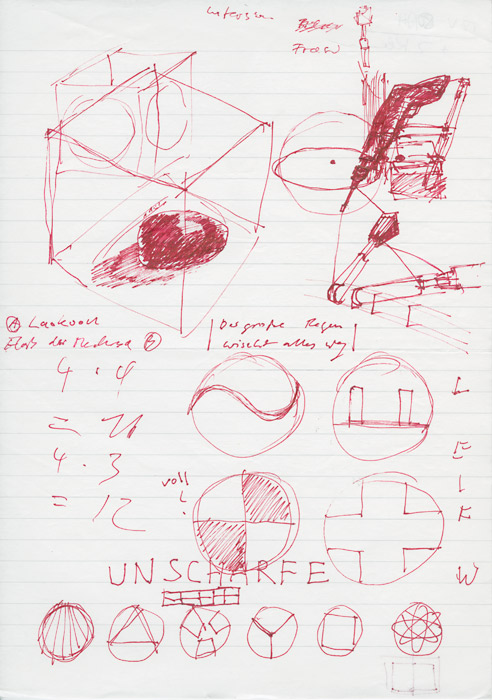 Ⓐ Laokoon
Floß der Medusa Ⓑ
Der große Regen
wischt alles weg
4 · 4
4 · 3
= 12
voll
L
E
I
K
W
UNSCHÄRFE